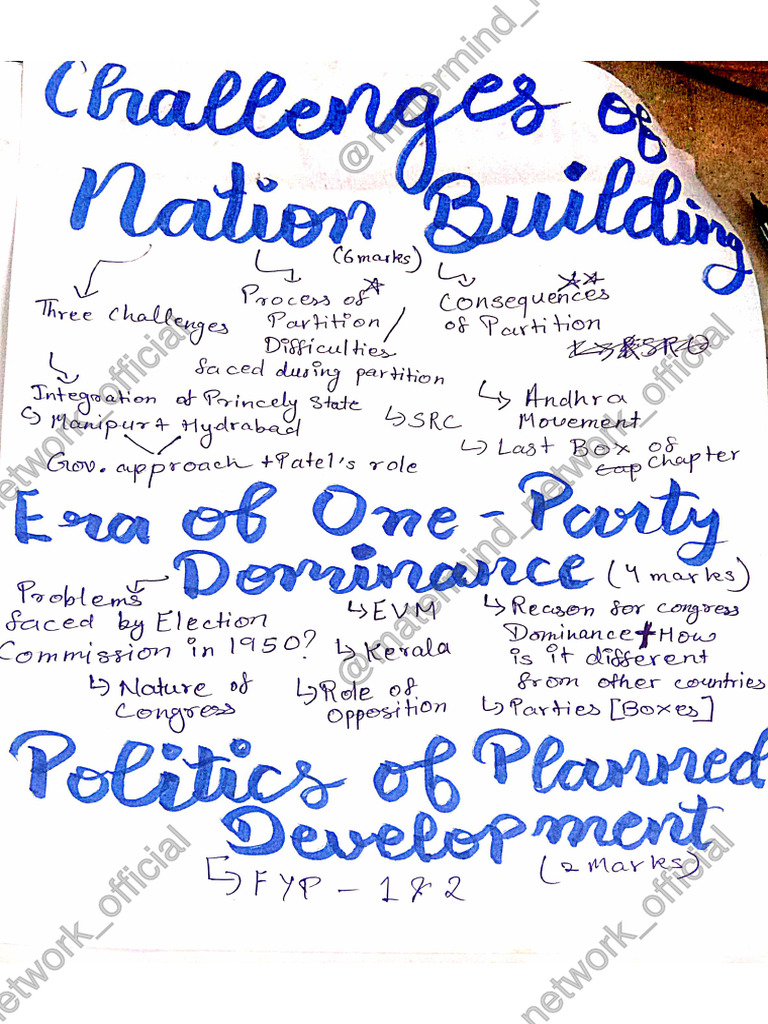 Challenges of
Nation Building
(6 marks)
Three Challenges
Process of
Partition /
Difficulties
faced during partition
Consequences
of Partition
Integration of Princely State
Manipur + Hydrabad
Gov. approach + Patel's role
SRC
Andhra
Movement
Last Box of
Chapter
Era of One-Party
Dominance (4 marks)
Problems
faced by Election
Commission in 1950?
EVM
Kerala
Reason for congress
Dominance + How
is it different
from other countries
Nature of
Congress
Role of
Opposition
Parties [Boxes]
Politics of Planned
Development
(2 Marks)
FYP - 1 & 2
@matermind_network_official
@matermind_network_official
network_official
network_official
network_official
network_official